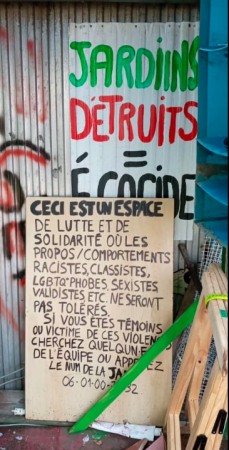 JARDIINS
DÉTRUITS
=
ÉCOCIDE
CECI EST UN ESPACE
DE LUTTE ET DE
SOLIDARITÉ OÙ LES
PROPOS/COMPORTEMENTS
RACISTES, CLASSISTES,
LGBTQ+PHOBES, SEXISTES
VALIDISTES ETC. NE SERONT
PAS TOLÉRÉS.
SI VOUS ÊTES TÉMOINS
OU VICTIME DE CES
CHERCHEZ QUELQUN
DE L'ÉQUIPE OU
LE NUM DE LA
06-01-00-